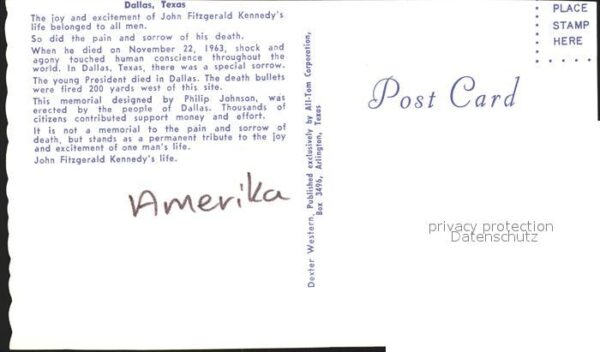 Dallas, Texas
The joy and excitement of John Fitzgerald Kennedy's
life belonged to all men.
So did the pain and sorrow of his death.
When he died on November 22, 1963, shock and
agony touched human conscience throughout the
world. In Dallas, Texas, there was a special sorrow.
The young President died in Dallas. The death bullets
were fired 200 yards west of this site.
This memorial designed by Philip Johnson, was
erected by the people of Dallas. Thousands of
citizens contributed support money and effort.
It is not a memorial to the pain and sorrow of
death, but stands as a permanent tribute to the joy
and excitement of one man's life.
John Fitzgerald Kennedy's life.
Amerika
Dexter Western, Published exclusively by All-Tom Corporation,
Box 3496, Arlington, Texas
Post Card
PLACE
STAMP
HERE
privacy protection
Datenschutz